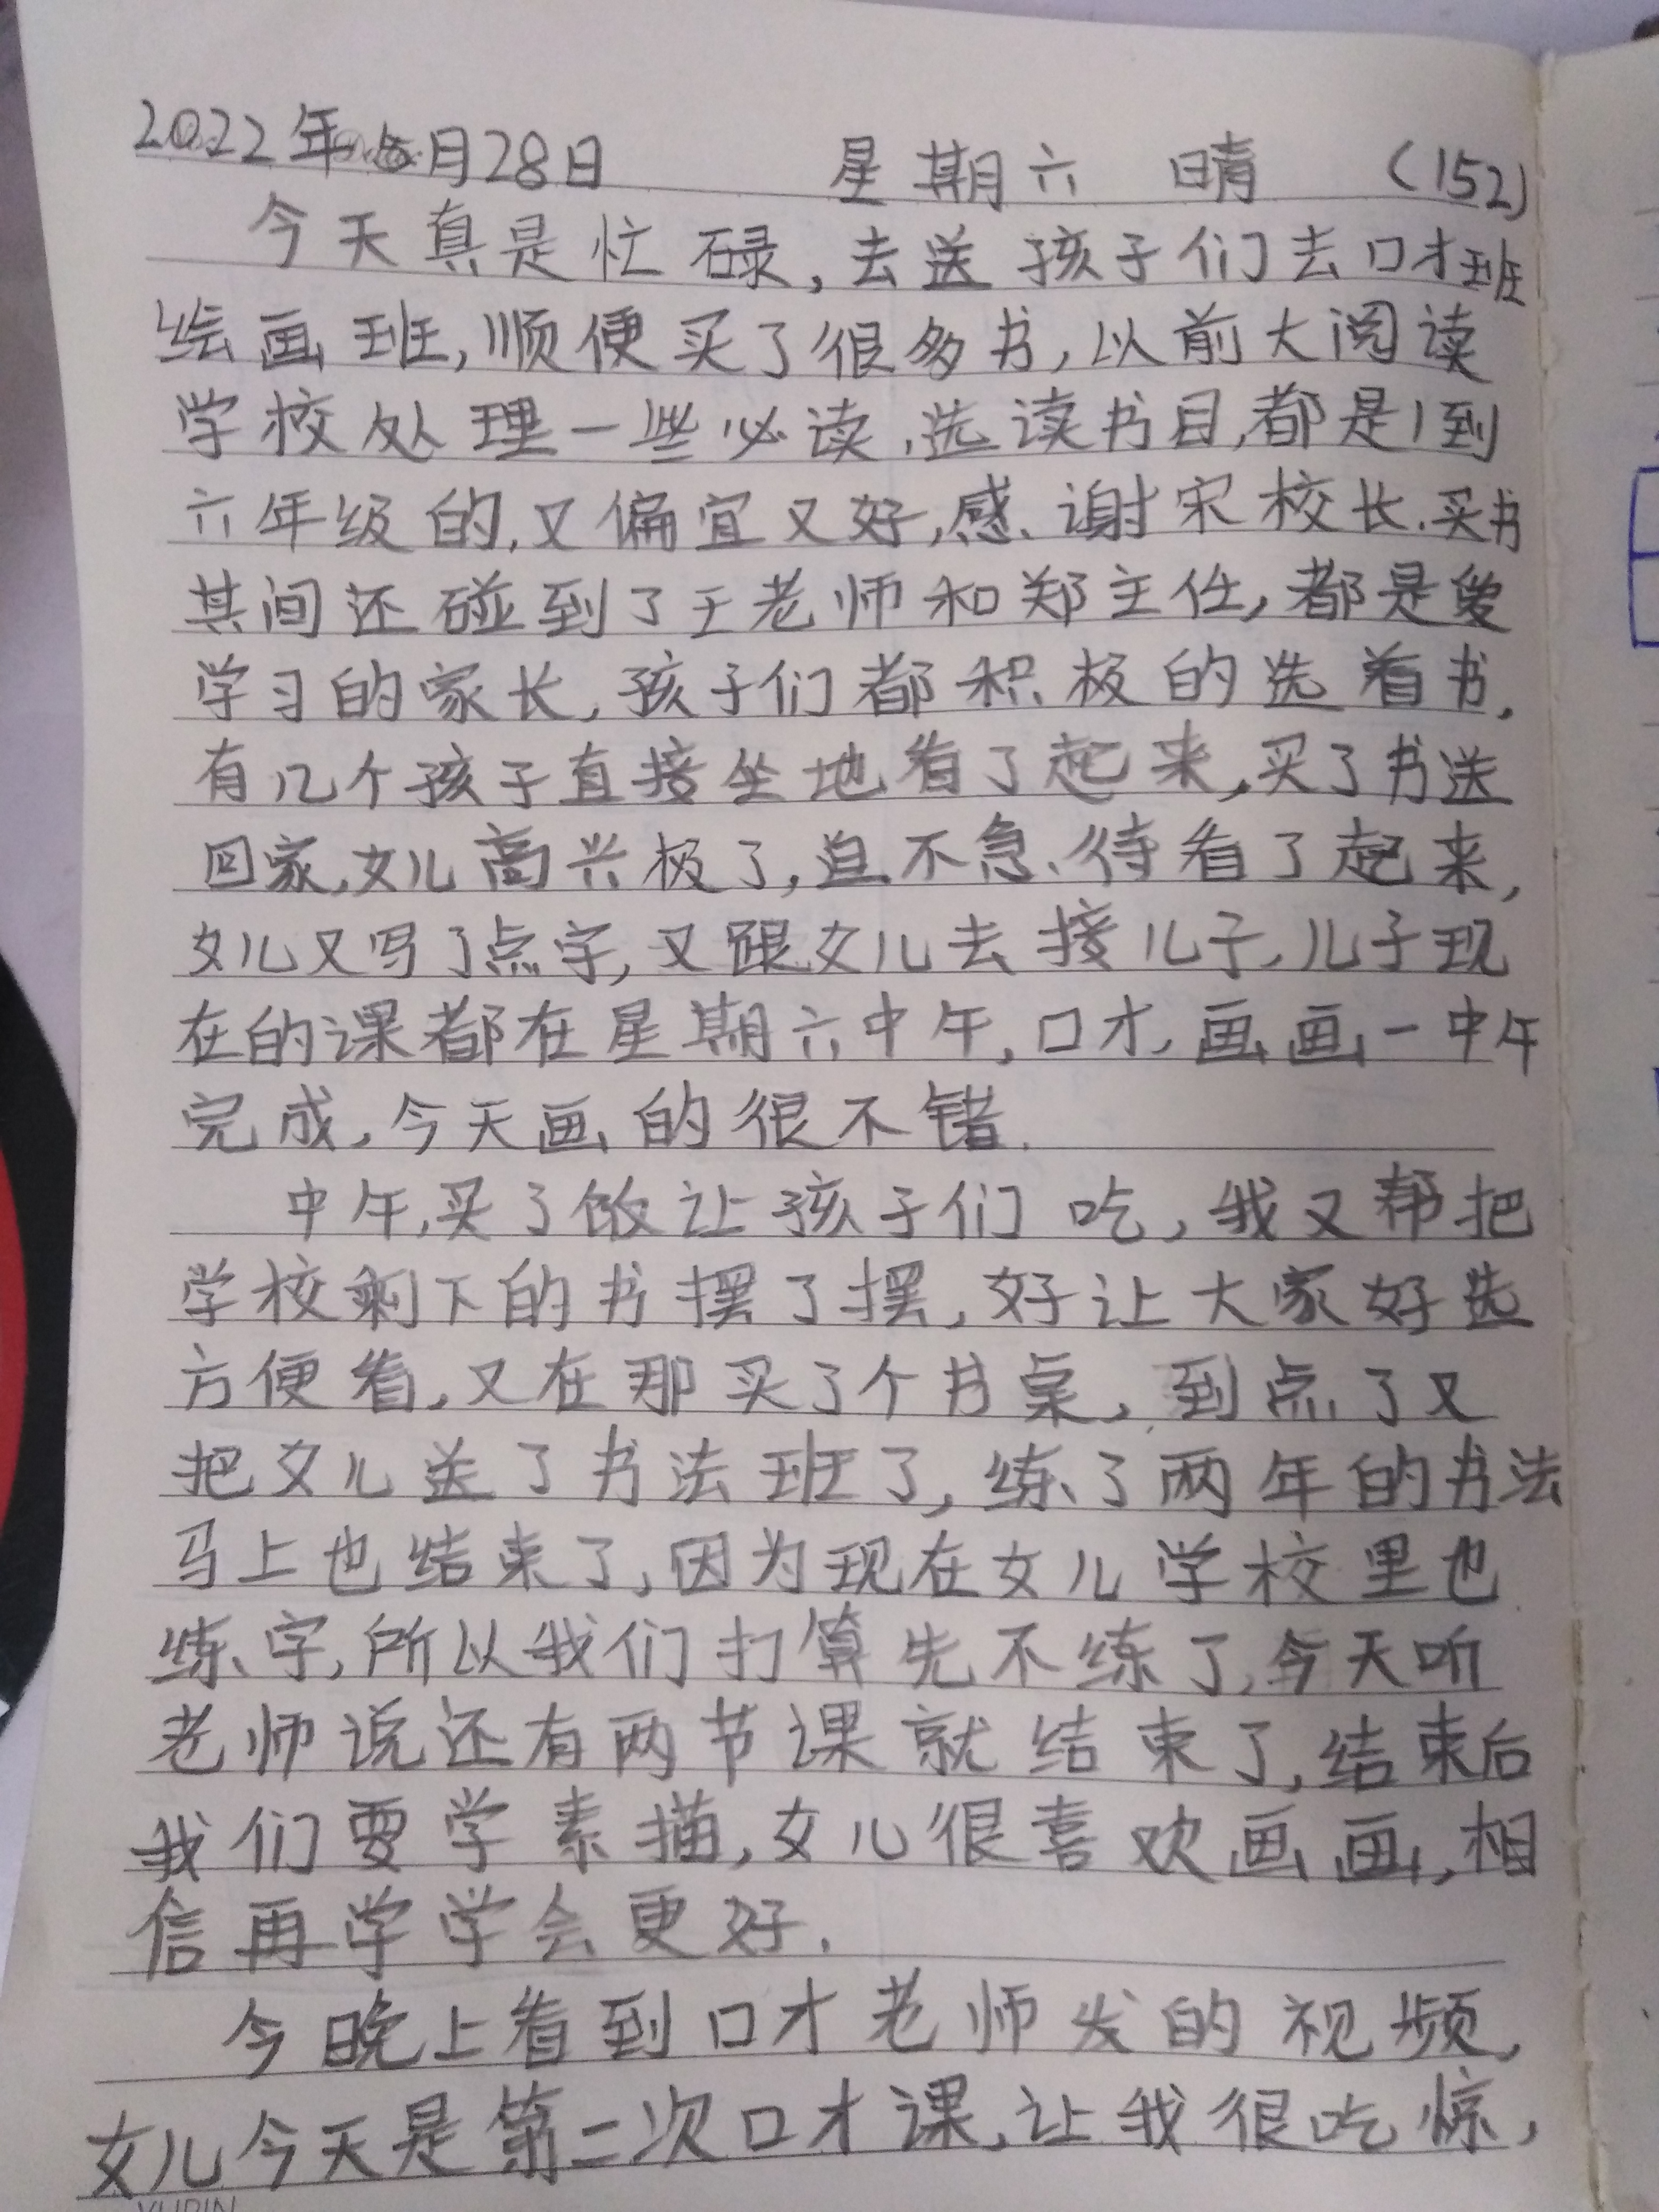 2022年5月28日 星期六 晴 (152)
今天真是忙碌,去送孩子们去口才班
绘画班,顺便买了很多书,以前大阅读
学校处理一些必读,选读书目,都是1到
六年级的,又偏宜又好,感谢宋校长.买书
其间还碰到了王老师和郑主任,都是爱
学习的家长,孩子们都积极的选着书,
有几个孩子直接坐地看了起来,买了书送
回家,女儿高兴极了,迫不急待看了起来,
女儿又写了点字,又跟女儿去接儿子,儿子现
在的课都在星期六中午,口才,画画一中午
完成,今天画的很不错.
中午,买了饭让孩子们吃,我又帮把
学校剩下的书摆了摆,好让大家好选
方便看,又在那买了个书桌,到点了又
把女儿送了书法班了,练了两年的书法
马上也结束了,因为现在女儿学校里也
练字,所以我们打算先不练了,今天听
老师说还有两节课就结束了,结束后
我们要学素描,女儿很喜欢画画,相
信再学学会更好.
今晚上看到口才老师发的视频,
女儿今天是第二次口才课,让我很吃惊,
YUPIN